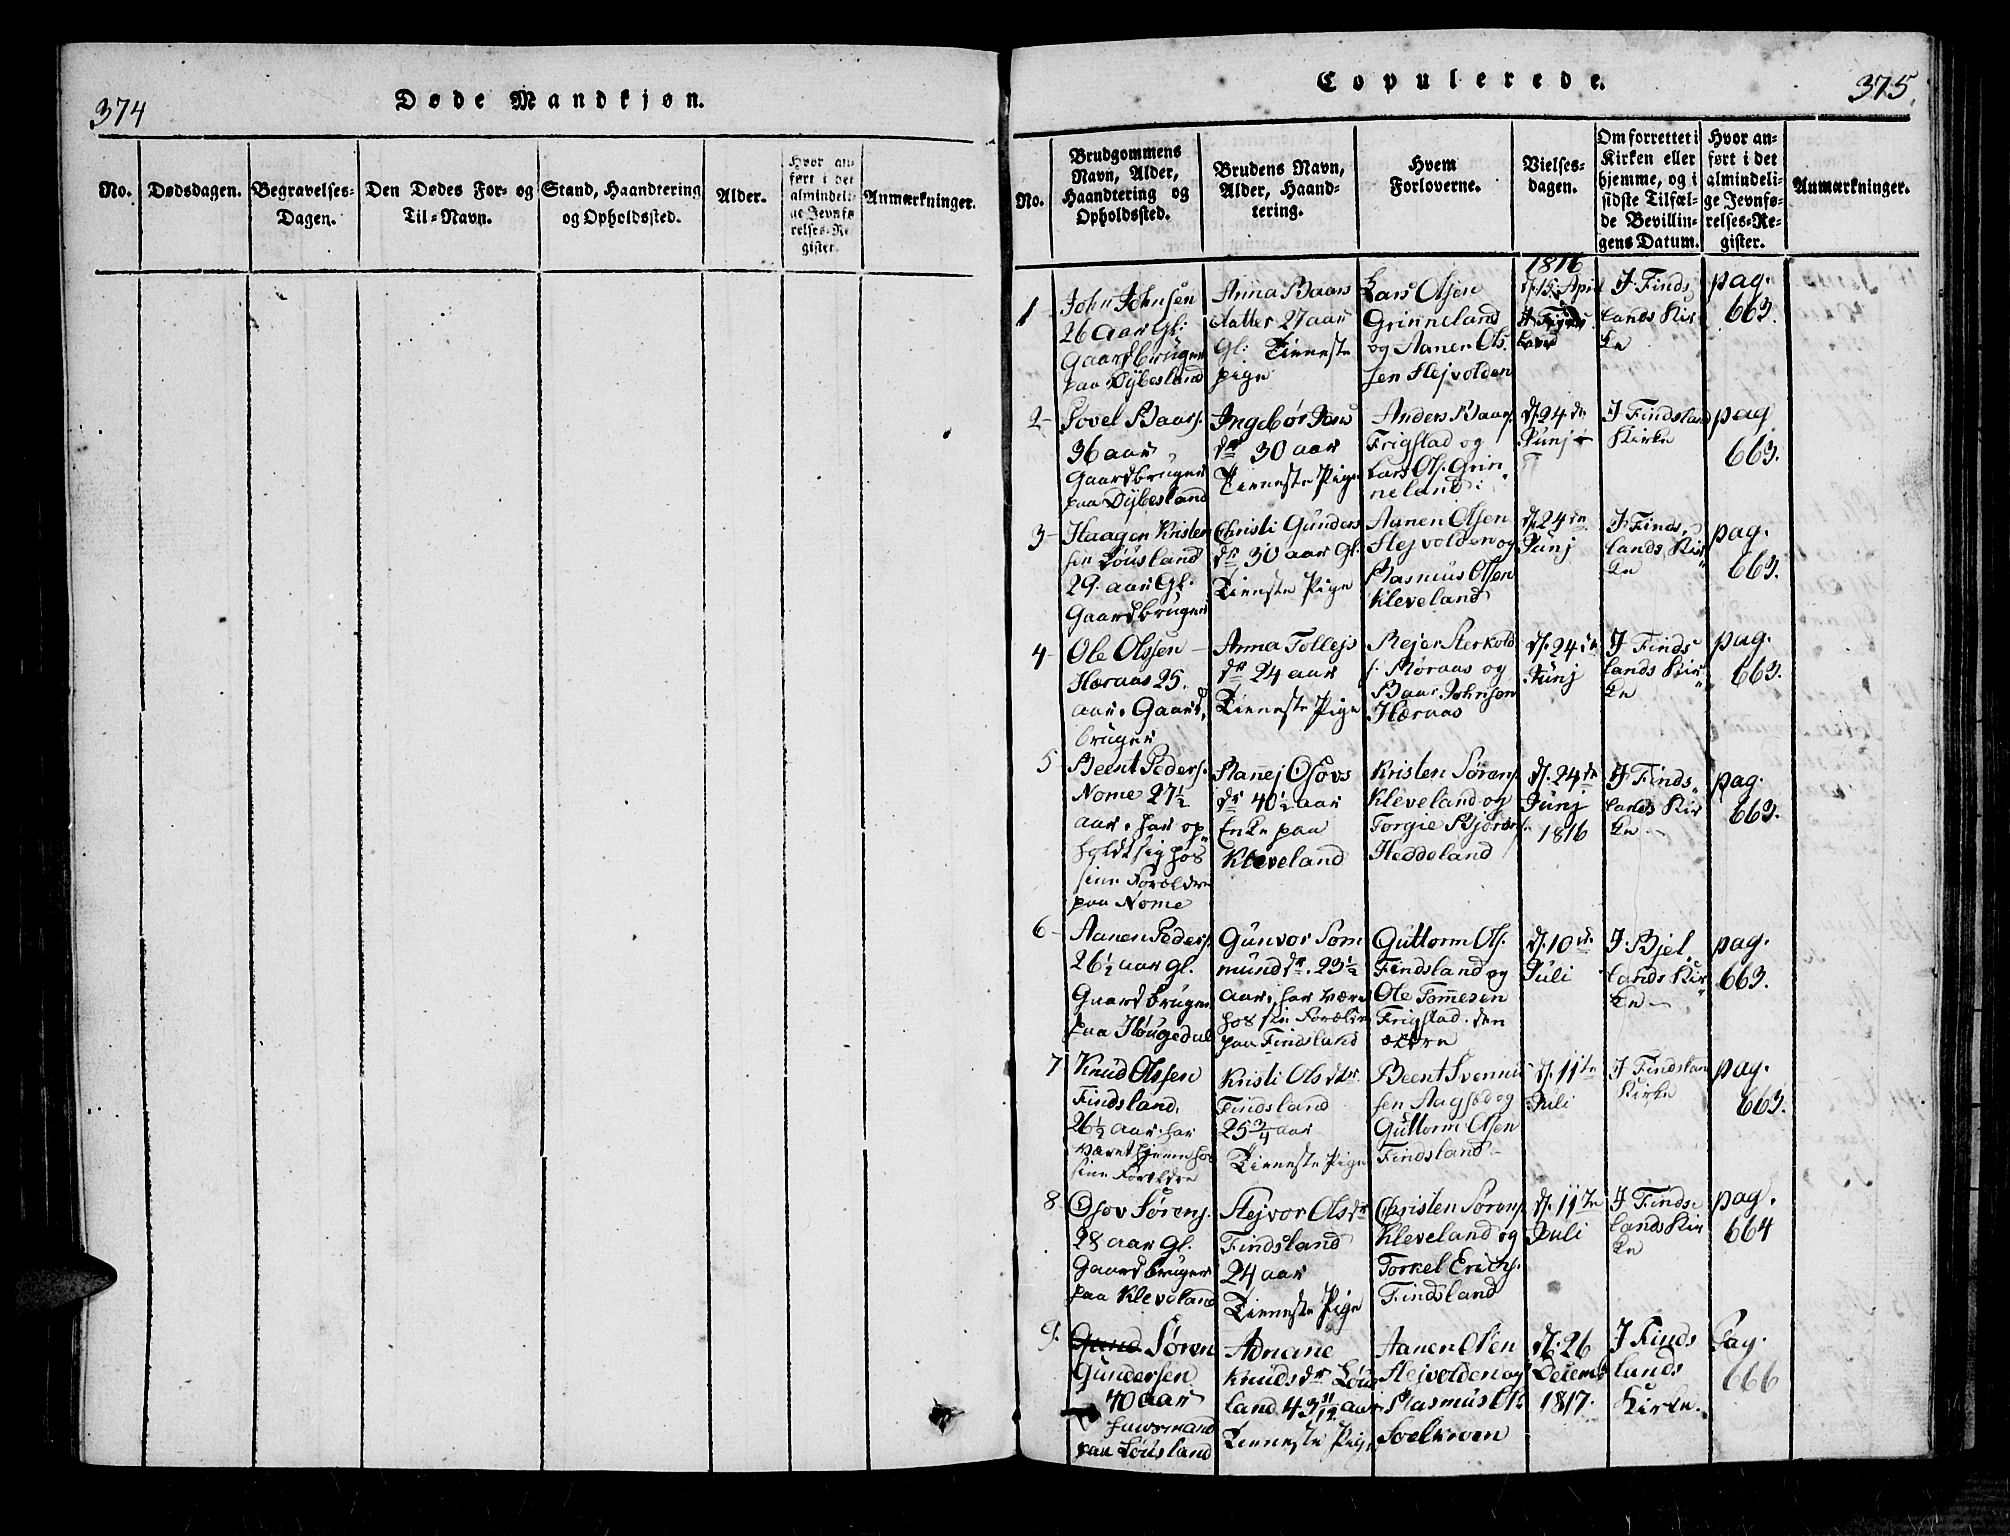 374
Døde Mandkjøn.
No.
Dødsdagen.
Begravelses-
Dagen.
Den Dødes For- og
Til-Navn.
Stand, Haandtering
og Opholdssted.
Alder.
Hvor an-
ført i det
almindeli-
ge Jevnfø-
relses-Re-
gister.
Anmærkninger.
Copulerede.
375.
No.
Brudgommens
Navn, Alder,
Haandtering og
Opholdssted.
Brudens Navn,
Alder, Haand-
tering.
Hvem
Forloverne.
Vielses-
dagen.
Om forrettet i
Kirken eller
hjemme, og i
sidste Tilfæl-
de Bevillin-
gens Datum.
Hvor an-
ført i det
almindeli-
ge Jevnfø-
relses-Re-
gister.
Anmærkninger.
1
John Johnsen
26 aar Gl:
Gaardbruger
paa Dÿbesland
Anna Baars
datter 27 aar
Gl: Tieneste
pige
Lars Olsen
Grinneland
og Aanen Ols
sen Stejvolden
1816
d. 15 April
I Finds
lands Kir
ke
pag.
663.
2-
Sovel Baars.
36 aar
Gaardbruger
paa Dÿbesland
Ingebör
dr 30 aar
Tieneste Pige
Anders Baars.
Frigstad og
Lars Ols. Grin
neland:
d. 24 de
Junj
I Findsland
Kirke
pag
663.
3-
Haagen Kristen
sen Löusland
29. aar Gl.
Gaardbruger
Christi Gunders
dr 30 aar Gl.
Tieneste Pige
Aanen Olsen
Stejvolden og
Rasmus Olsen
Kleveland
d. 24 de
Junj
I Finds
lands Kir
ke
pag.
663.
4-
Ole Olssen
Hæraas 25.
aar. Gaard,
bruger
Anna Tollefs
dr 24 aar
Tieneste Pige
Rejer Sterkold
s. Röraas og
Baar Johnsen
Hæraas
d. 24 de
Junj
I Finds
lands Kir
ke
pag.
663.
5
Beent Peders.
Nome 27½
aar. har op
holdt sig hos
sine Forældre
paa Nome
Rannej Osovs
dr 40½ aar
Enke paa
Kleveland
Kristen Sörens.
Kleveland og
Torgie Bjorns.
Heddeland
d. 24 de
Junj
1816
I Finds
lands Kir
ke
pag.
663.
6-
Aanen Peders.
26½ aar gl.
Gaardbruger
paa Hougedal
Gunvor Som
mund dr. 23½
aar, har været
hos sin Forældre
paa Findsland
Guttorm Ols.
Findsland og
Ole Tommesen
Frigstad. den
ældre
d. 10 de
Juli
I Bjel
lands Kir
ke
pag.
663.
7
Knud Olssen
Findsland.
26½ aar. har
været hjemme hos
sine Forældre
Kristi Ols dtr.
Findsland
25¾ aar
Tieneste Pige
Beent Svennu
sen Aagsed og
Guttorm Olsen
Findsland
d. 11te
Juli
I Findslan
Kirke
pag.
663.
8-
Osov Sörens.
28 aar Gl.
Gaardbruger
paa Kleveland
Stejvor Ols dr
Findsland
24 aar
Tieneste Pige
Christen Sörens
Kleveland og
Torkel Erichs.
Findsland
d. 11te
Juli
I Finds
lands Kir
ke
pag.
664
9.
Sören
Gundersen
40 aar
Huusmand
paa Löusland
Adriane
Knuds dr Löus
land 43 11/12 aar
Tieneste Pige
Aanen Olsen
Stejvolden og
Rasmus Ols
d. 26
Decemb
1817.
I Finds
lands
Kirke.
Pag.
666